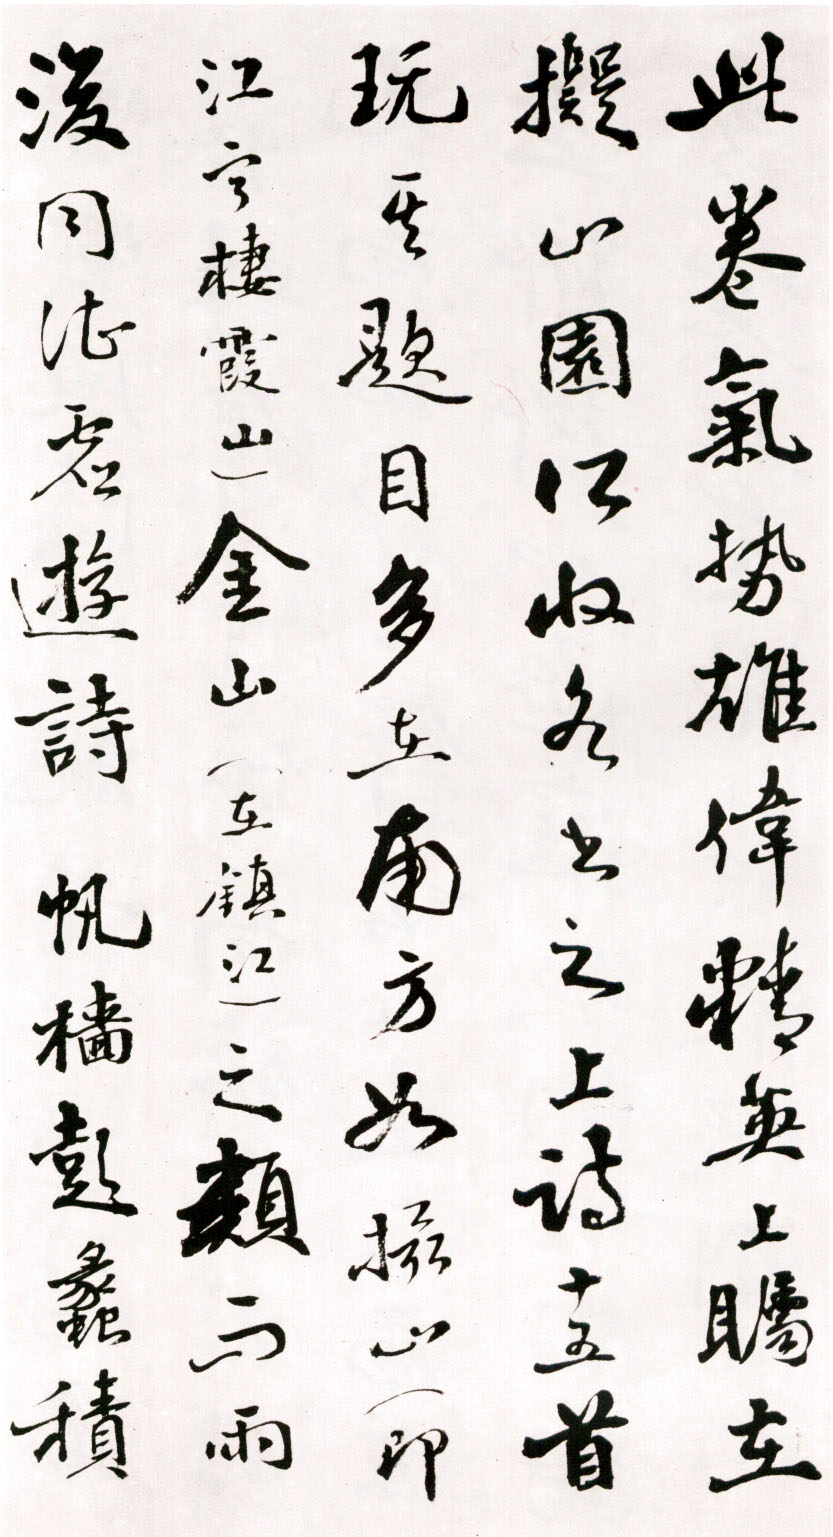 此卷氣勢雄偉精英上矚在
擬山園所收各書之上詩十五首
玩其題目多在南方如攝山(即
江寧棲霞山)金山(在鎮江)之類而雨
後同虛遊詩 帆檣彭蠡積